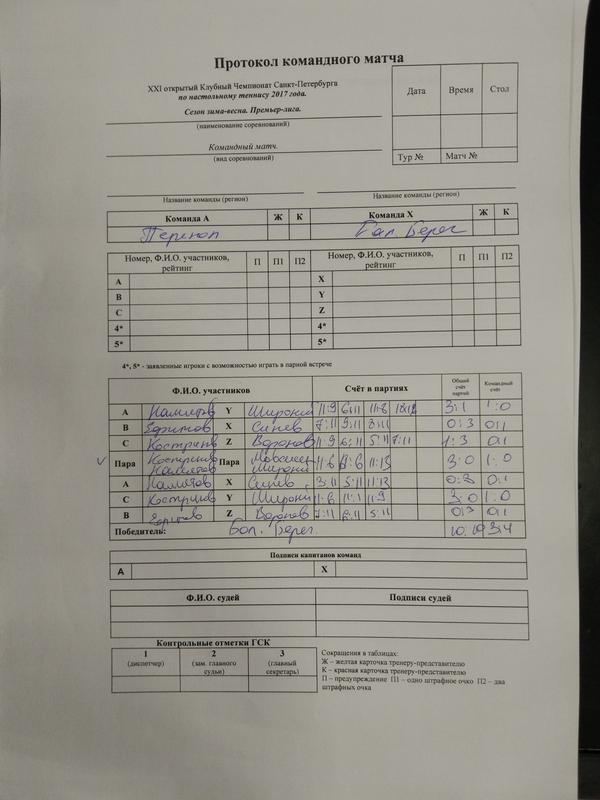 Протокол командного матча
XXI открытый Клубный Чемпионат Санкт-Петербурга
по настольному теннису 2017 года.
Сезон зима-весна. Премьер-лига.
(наименование соревнований)
Командный матч.
(вид соревнований)
Дата Время Стол
Тур № Матч №
Название команды (регион) Название команды (регион)
Команда А Ж К Команда Х Ж К
Бал. Берег
Номер, Ф.И.О. участников, рейтинг П П1 П2 Номер, Ф.И.О. участников, рейтинг П П1 П2
А Х
В Y
С Z
4* 4*
5* 5*
4*, 5* - заявленные игроки с возможностью играть в парной встрече
Ф.И.О. участников Счёт в партиях Общий счёт партий Командный счёт
А Y Широкий 11:9 6:11 11:8 3:1 1:0
В Х Синев 7:11 9:11 8:11 0:3 0:1
С Z Воронов 11:9 6:11 5:11 7:11 1:3 0:1
Пара Пара 11:6 11:6 11:13 3:0 1:0
А Х Синев 3:11 5:11 11:13 0:3 0:1
С Y Широкий 11:6 11:1 11:9 3:0 1:0
В Z Воронов 7:11 6:11 5:11 0:3 0:1
Победитель: Бол. Берег. 3:4
Подписи капитанов команд
А Х
Ф.И.О. судей Подписи судей
Контрольные отметки ГСК
1 2 3
(диспетчер) (зам. главного судьи) (главный секретарь)
Сокращения в таблицах:
Ж – желтая карточка тренеру-представителю
К – красная карточка тренеру-представителю
П – предупреждение П1 – одно штрафное очко П2 – два
штрафных очка